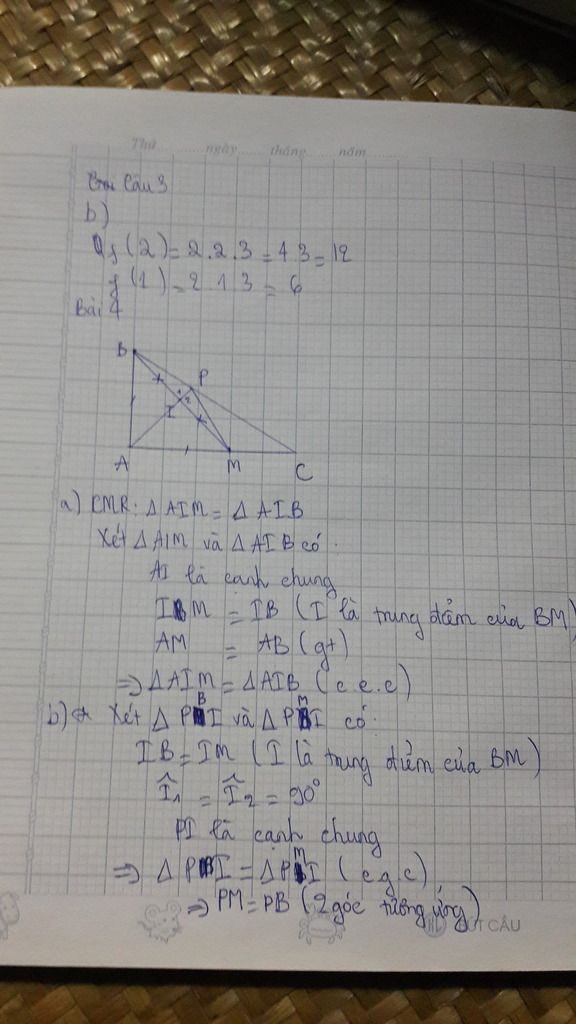 Thứ ngày tháng năm
Câu 3
b)
f(2) = 2.2.3 = 4.3 = 12
f(1) = 2.1.3 = 6
Bài 4
B
P
1 2
I
A M C
a) CMR: Δ AIM = Δ AIB
Xét Δ AIM và Δ AIB có:
AI là cạnh chung
IM = IB (I là trung điểm của BM)
AM = AB (gt)
=> Δ AIM = Δ AIB (c.c.c)
b) Xét Δ PBI và Δ PMI có:
IB = IM (I là trung điểm của BM)
Î₁ = Î₂ = 90°
PI là cạnh chung
=> Δ PBI = Δ PMI (c.g.c)
=> PM = PB (2 góc tương ứng)
BÚT CÂU